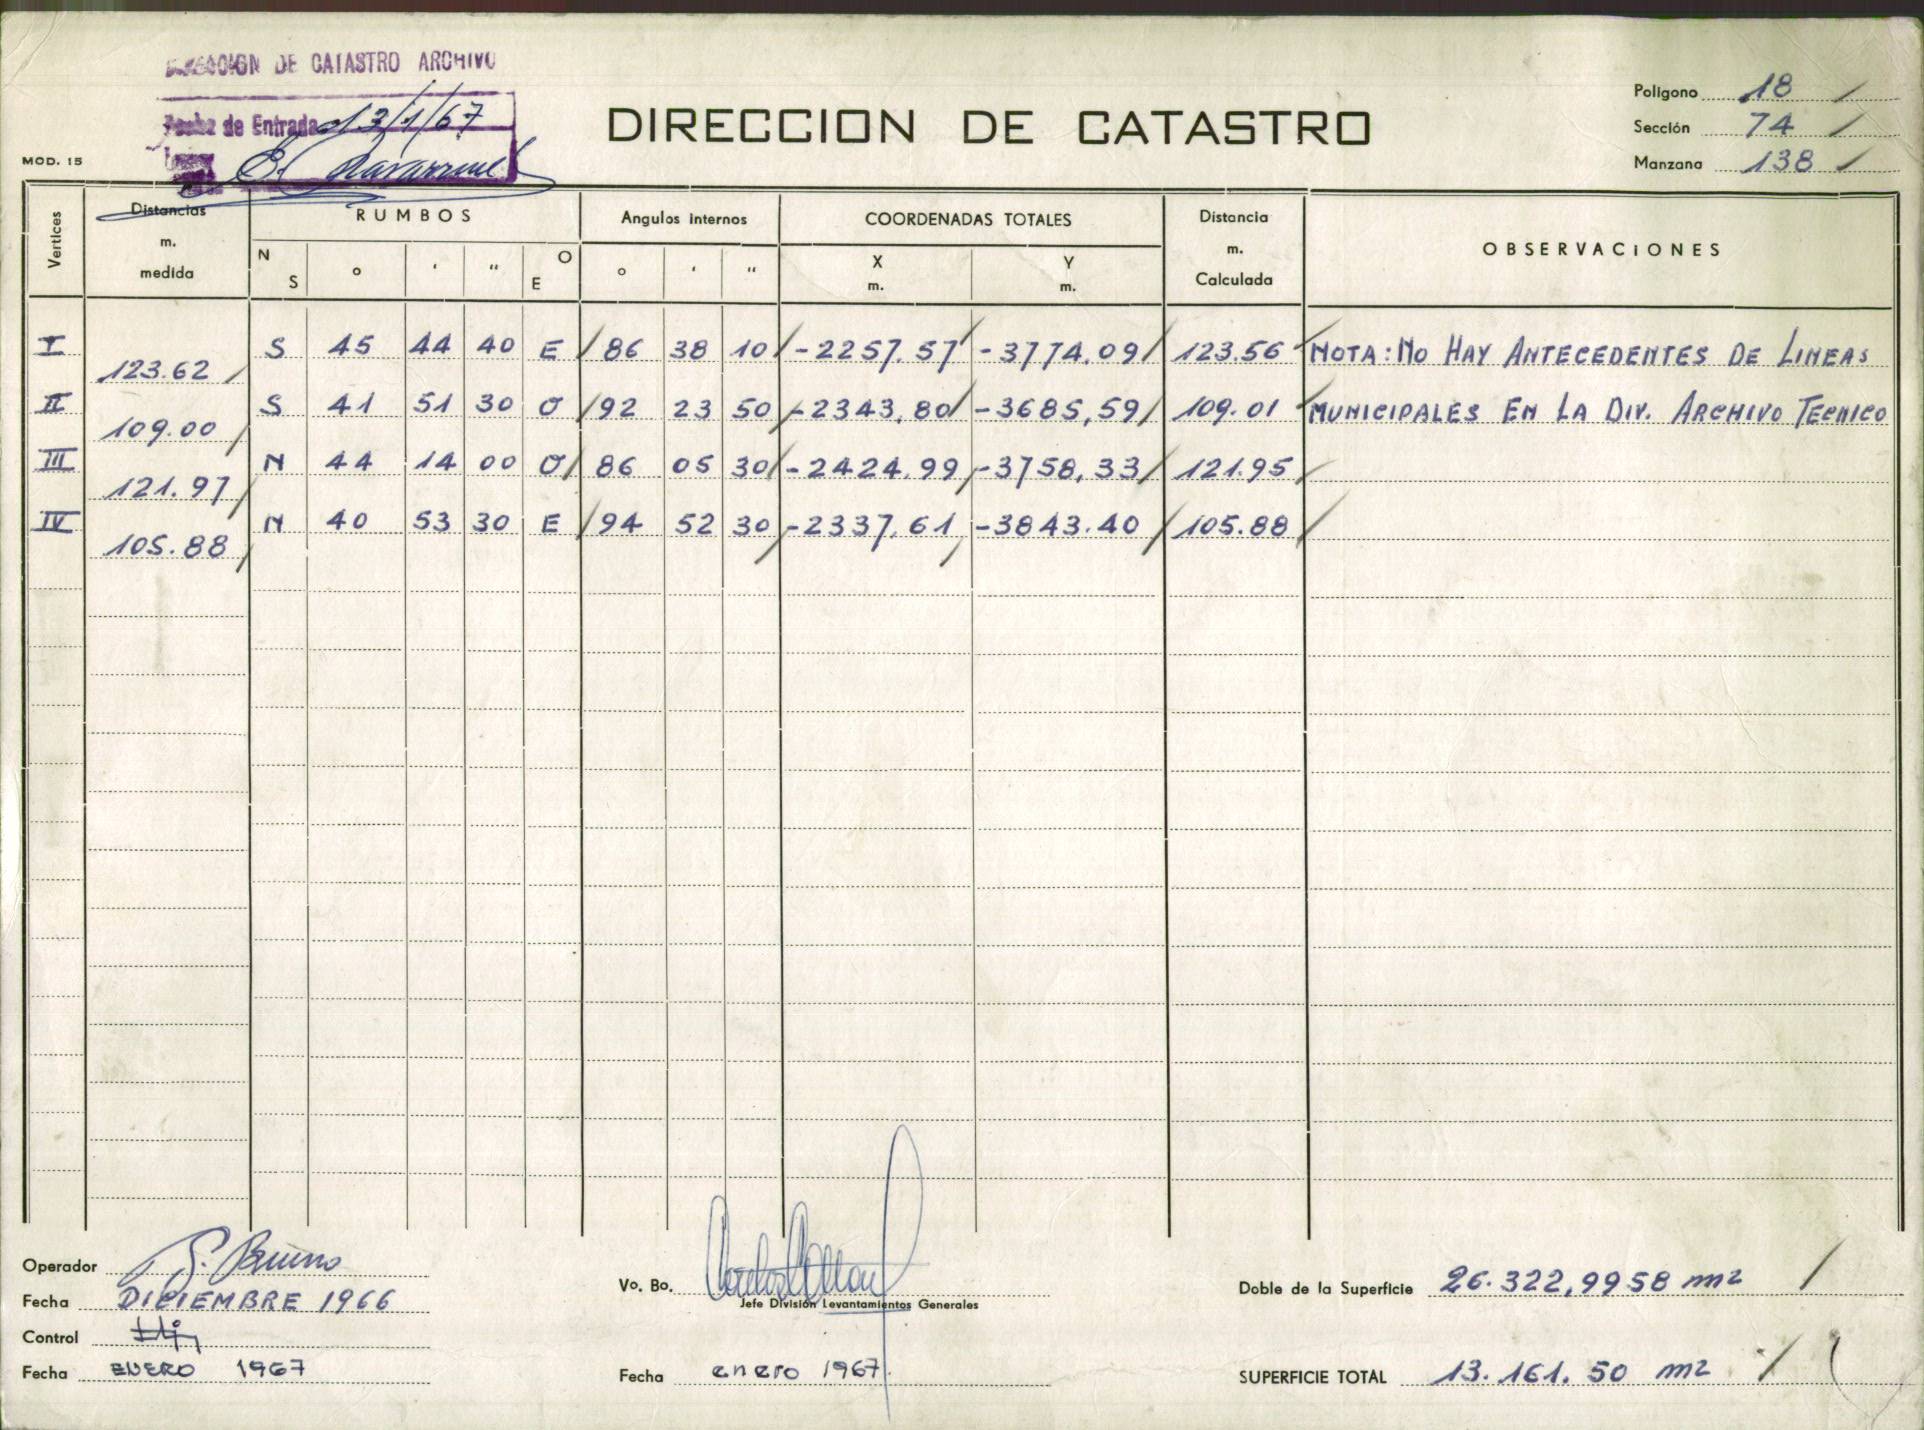 DIRECCION DE CATASTRO ARCHIVO
Fecha de Entrada 13/1/67
MOD. 15
DIRECCION DE CATASTRO
Poligono 18
Sección 74
Manzana 138
Vertices Distancias m. medida RUMBOS Angulos internos COORDENADAS TOTALES Distancia m. Calculada OBSERVACIONES
N S ° ' " O E ° ' " X m. Y m.
I S 45 44 40 E 86 38 10 -2257.57 -3774.09 123.56 NOTA: NO HAY ANTECEDENTES DE LINEAS
123.62
II S 41 51 30 O 92 23 50 -2343,80 -3685,59 109.01 MUNICIPALES EN LA DIV. ARCHIVO TECNICO
109.00
III N 44 14 00 O 86 05 30 -2424.99 -3758,33 121.95
121.97
IV N 40 53 30 E 94 52 30 -2337,61 -3843.40 105.88
105.88
Operador G. Bruno
Fecha DICIEMBRE 1966
Control
Fecha ENERO 1967
Vo. Bo.
Jefe División Levantamientos Generales
Fecha enero 1967
Doble de la Superficie 26.322,9958 m2
SUPERFICIE TOTAL 13.161.50 m2